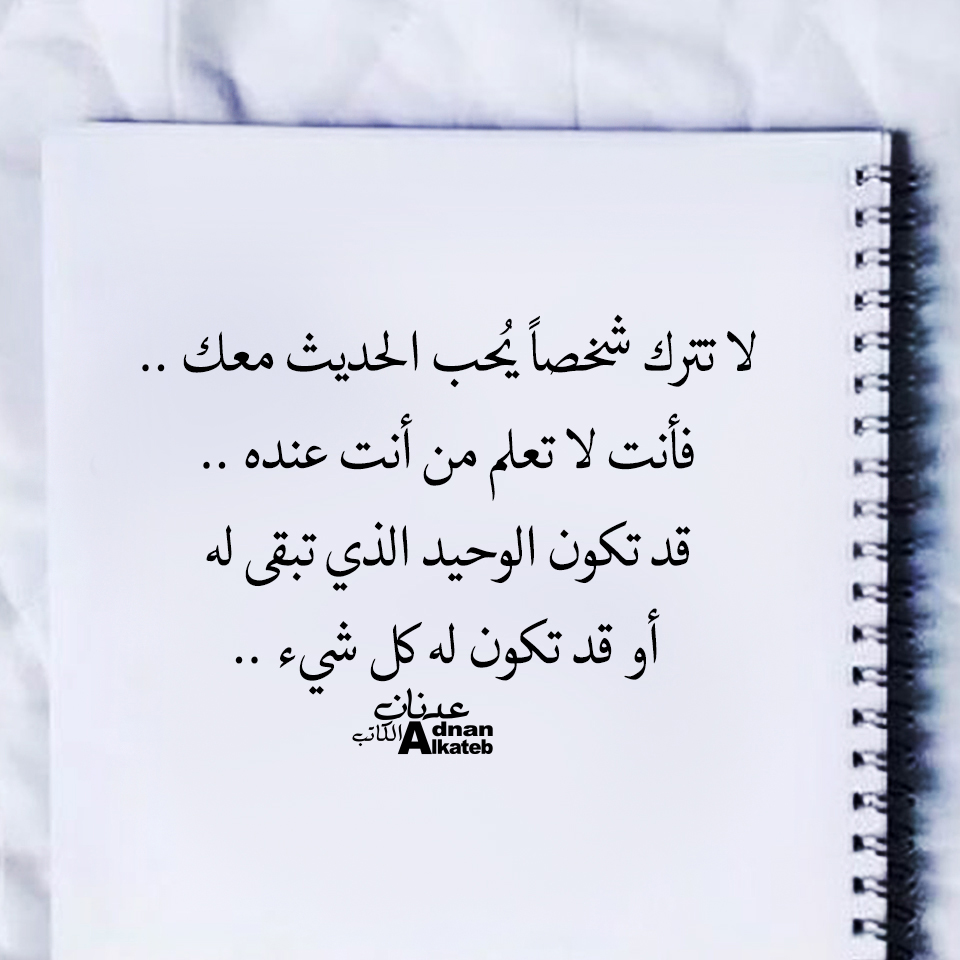 لا تترك شخصاً يُحب الحديث معك ..
فأنت لا تعلم من أنت عنده ..
قد تكون الوحيد الذي تبقى له
أو قد تكون له كل شيء ..
عدنان
الكاتب
Adnan
Alkateb